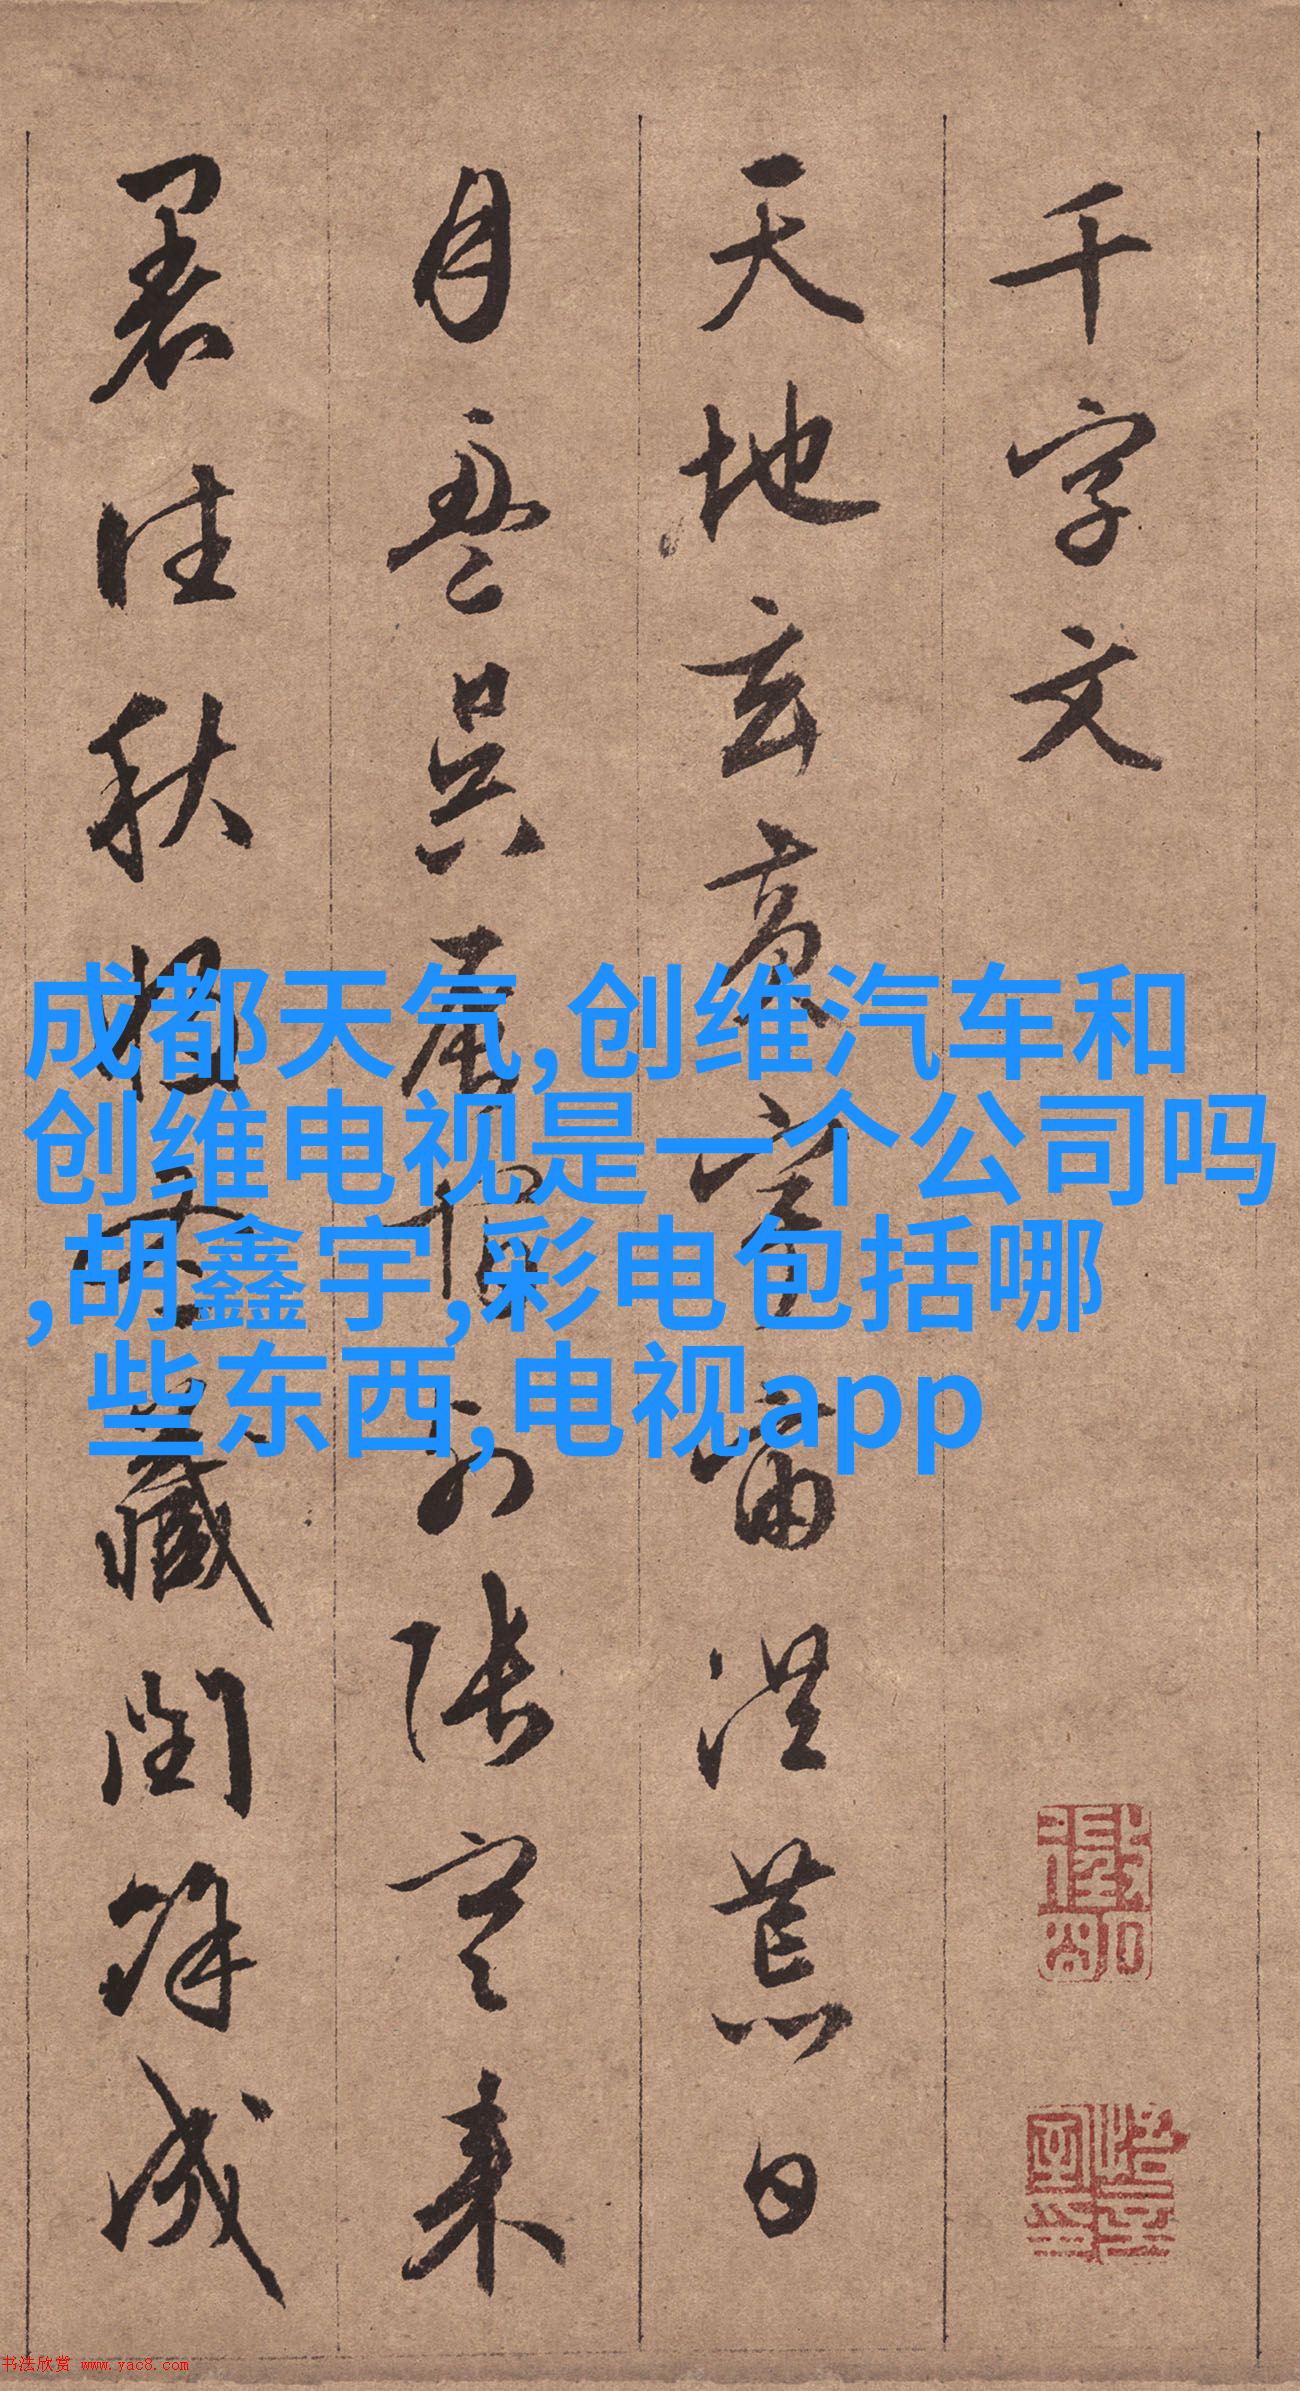 千字文
天地玄黄宇宙洪荒日
月盈昃辰宿列张寒来
暑往秋收冬藏闰余成
成都天气,创维汽车和
创维电视是一个公司吗
,胡鑫宇,彩电包括哪
些东西,电视app
书法欣赏 www.yac8.com